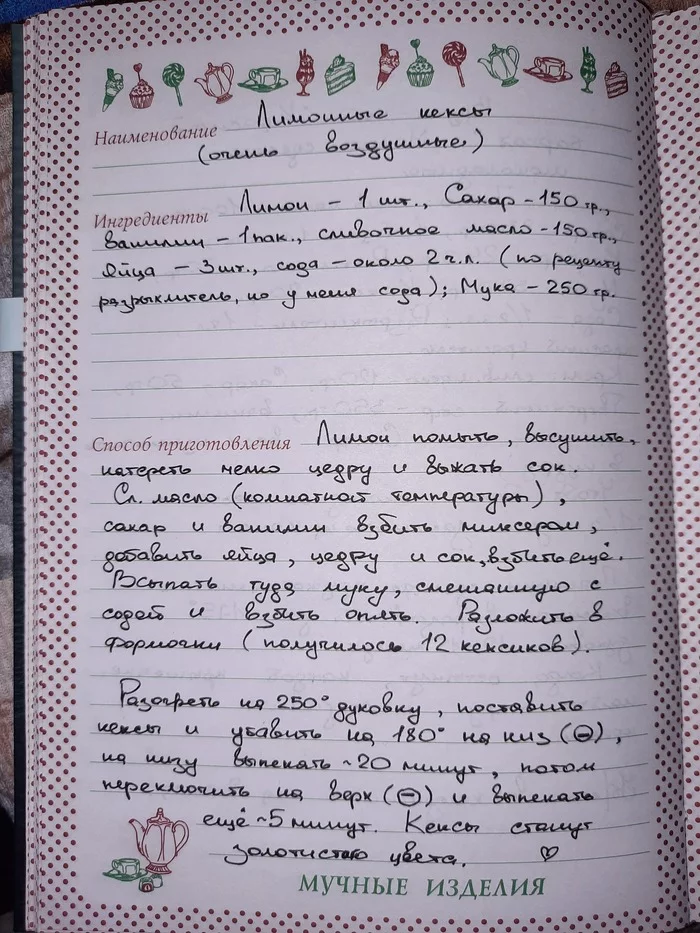 Лимонные кексы
Наименование
(очень воздушные)
Ингредиенты Лимон - 1 шт., Сахар - 150 гр.,
ванилин - 1 пак., сливочное масло - 150 гр.,
яйца - 3 шт., сода - около 2 ч.л. (по рецепту
разрыхлитель, но у меня сода); Мука - 250 гр.
Способ приготовления Лимон помыть, высушить,
натереть мелко цедру и выжать сок.
Сл. масло (комнатной температуры),
сахар и ванилин взбить миксером,
добавить яйца, цедру и сок, взбить ещё.
Всыпать туда муку, смешанную с
содой и взбить опять. Разложить в
формочки (получилось 12 кексиков).
Разогреть на 250° духовку, поставить
кексы и убавить на 180° на низ (⊖),
на низу выпекать ~20 минут, потом
переключить на верх (⊖) и выпекать
ещё ~5 минут. Кексы станут
золотистого цвета. ♡
МУЧНЫЕ ИЗДЕЛИЯ